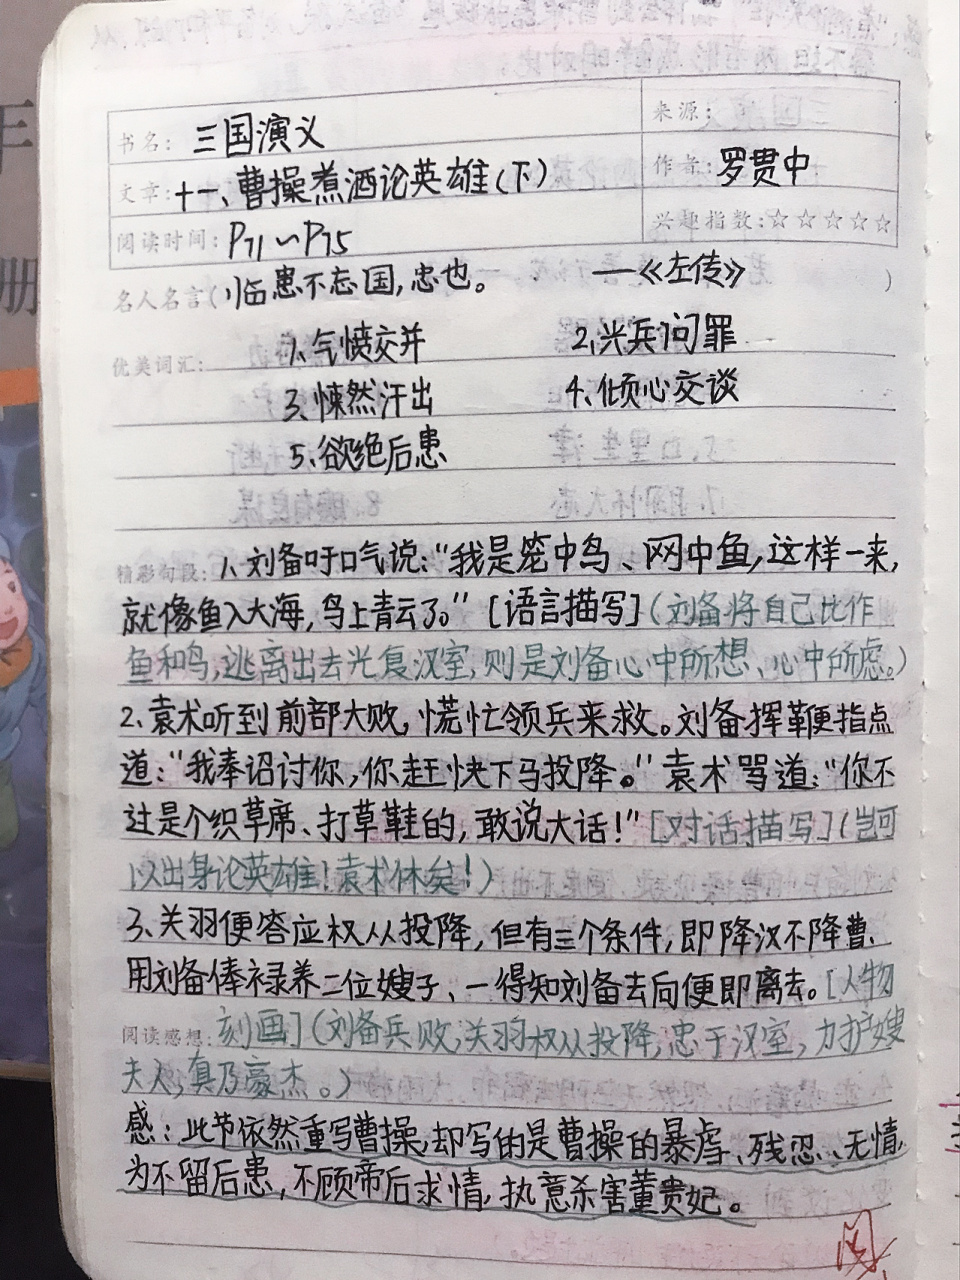 书名：三国演义 来源：
文章：十一、曹操煮酒论英雄（下） 作者：罗贯中
阅读时间：P71～P75 兴趣指数：☆☆☆☆☆
名人名言（临患不忘国，忠也。 ——《左传》）
优美词汇：1、气愤交并 2、兴兵问罪
3、悚然汗出 4、倾心交谈
5、欲绝后患
精彩句段：1、刘备吁口气说：“我是笼中鸟、网中鱼，这样一来，
就像鱼入大海，鸟上青云了。”［语言描写］（刘备将自己比作
鱼和鸟，逃离出去光复汉室，则是刘备心中所想、心中所虑。）
2、袁术听到前部大败，慌忙领兵来救。刘备挥鞭指点
道：“我奉诏讨你，你赶快下马投降。”袁术骂道：“你不
过是个织草席、打草鞋的，敢说大话！”［对话描写］（岂可
以出身论英雄！袁术休矣！）
3、关羽便答应权从投降，但有三个条件，即降汉不降曹、
用刘备俸禄养二位嫂子、一得知刘备去向便即离去。［人物
阅读感想：刻画］（刘备兵败，关羽权从投降，忠于汉室，力护嫂
夫人，真乃豪杰。）
感：此节依然重写曹操，却写的是曹操的暴虐、残忍、无情，
为不留后患，不顾帝后求情，执意杀害董贵妃。
阅